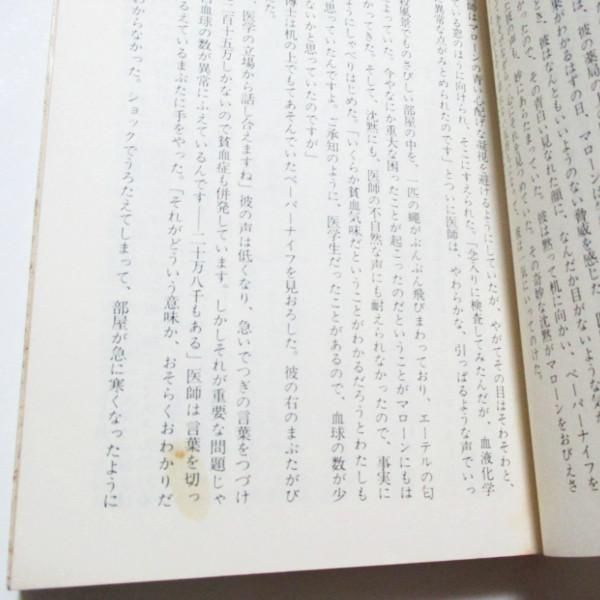 果がわかるはずの日、マローンは
とき、彼はなんともいいようのない脅威を感じた。
かったので、その青白い見なれた顔に、なんだか目がないような
が、妙にあらたまっていた。彼は黙って机に向かい、ペーパーナイフを
いじっていた。その奇妙な沈黙がマローンをおびえさ
一気にいってのけた。
師はマローンの青い心配そうな凝視を避けるようにしていたが、やがてその目はそわそわと、
ている窓のほうに向けられ、そこにすえられた。「念入りに検査してみたんだが、血液化学
異常な点がみとめられたのです」とついに医師は、やわらかな、引っぱるような声でいっ
殺風景でものさびしい部屋の中を、一匹の蠅がぶんぶん飛びまわっており、エーテルの匂
よっていた。今やなにか重大な困ったことが起こったのだということがマローンにもは
かってきた。そして、沈黙にも、医師の不自然な声にも耐えられなかったので、事実に
にしゃべりはじめた。「いくらか貧血気味だということがわかるだろうとわたしも
思っていたんですよ。ご承知のように、医学生だったことがあるので、血球の数が少
ないかと思っていたのですが」
博士は机の上でもてあそんでいたペーパーナイフを見おろした。彼の右のまぶたがぴ
った。
、医学の立場から話し合えますね」彼の声は低くなり、急いでつぎの言葉をつづけ
二百十五万しかないので貧血症も併発しています。しかしそれが重要な問題じゃ
血球の数が異常にふえているんです――二十万八千もある」医師は言葉を切っ
るえているまぶたに手をやった。「それがどういう意味か、おそらくおわかりだ
わからなかった。ショックでうろたえてしまって、部屋が急に寒くなったように